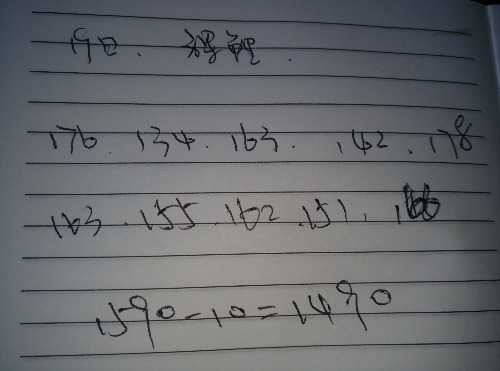 19日.
176. 134. 163. 142. 178
163. 155. 162. 151. 166
1590-10=1490